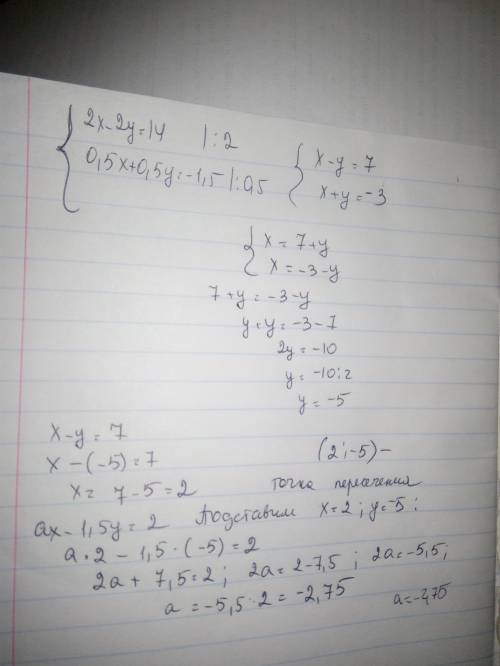 2x-2y=14 |:2
0,5x+0,5y=-1,5 |:0,5
x-y=7
x+y=-3
x=7+y
x=-3-y
7+y=-3-y
y+y=-3-7
2y=-10
y=-10:2
y=-5
x-y=7
x-(-5)=7
x=7-5=2
(2;-5)-
точка пересечения
ax-1,5y=2 Подставим x=2; y=-5:
a·2-1,5·(-5)=2
2a+7,5=2; 2a=2-7,5; 2a=-5,5;
a=-5,5:2=-2,75
a=-2,75